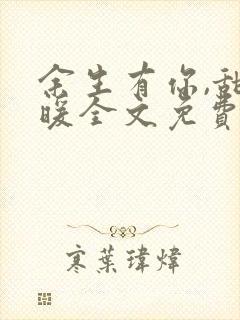 余生有你,甜
暖全文免費
寒葉瑋煒